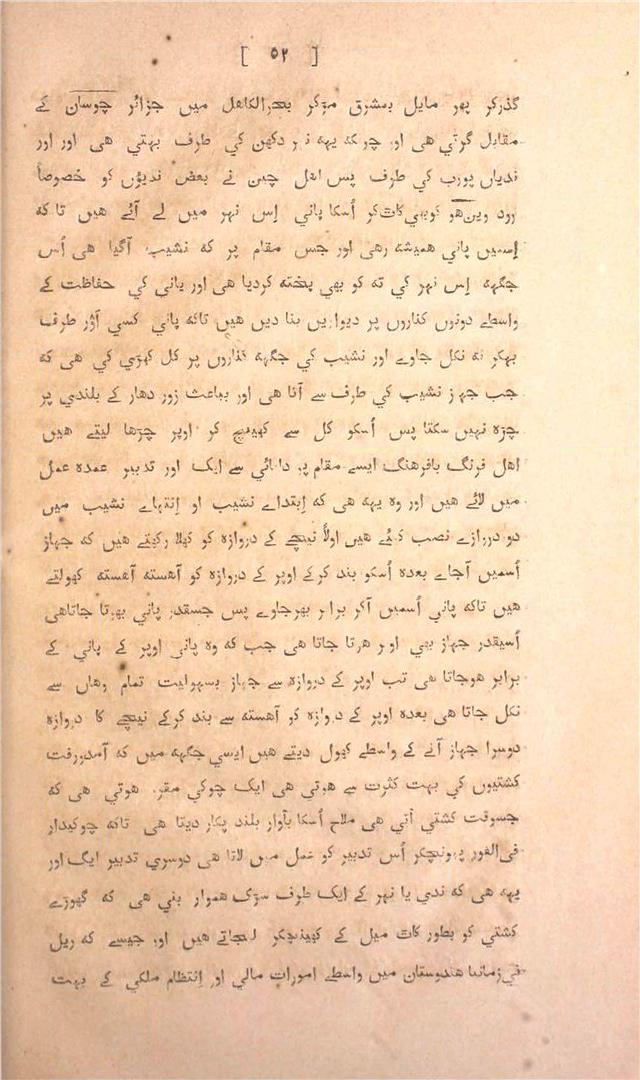 [ ٥٢ ]
گذرکر پهر مایل بمشرق مڑکر بحرالکاهل میں جزائر چوسان کے
مقابل گرتي هی اور چونکه یهه نهر دکهن کي طرف بهتي هی اور اور
ندیاں پورب کي طرف پس اهل چین نے بعض ندیؤں کو خصوصاً
رود وین‌هو کوبهي کاٹ‌کر اُسکا پاني اِس نہر میں لے آئے هیں تا که
اِسمیں پاني همیشه رهی اور جس مقام پر که نشیب آگیا هی اُس
جگهه اِس نہر کي ته کو بهي پخته کردیا هی اور پاني کي حفاظت کے
واسطے دونوں کناروں پر دیواریں بنا دیں هیں تاکه پاني کسي اَوْر طرف
بهکر نه نکل جاوے اور نشیب کي جگهه کناروں پر کل کهڑي کي هی که
جب جهاز نشیب کي طرف سے آتا هی اور بباعث زور دهار کے بلندي پر
چڑه نہیں سکتا پس اُسکو کل سے کهینچ کر اوپر چڑها لیتے هیں
اهل فرنگ بافرهنگ ایسے مقام پر دانائي سے ایک اور تدبیر عمده عمل
میں لائے هیں اور وه یهه هی که اِبتداے نشیب او اِنتهاے نشیب میں
دو دروازے نصب کئے هیں اولاً نیچے کے دروازه کو کهلا رکهتے هیں که جهاز
اُسمیں آجاے بعده اُسکو بند کرکے اوپر کے دروازه کو آهسته آهسته کهولتے
هیں تاکه پاني اُسمیں آکر برابر بهرجاوے پس جسقدر پاني بهرتا جاتاهی
اُسیقدر جهاز بهي اوپر هرتا جاتا هی جب که وه پاني اوپر کے پاني کے
برابر هوجاتا هی تب اوپر کے دروازه سے جهاز بسهولیت تمام وهاں سے
نکل جاتا هی بعده اوپر کے دروازه کو آهسته سے بند کرکے نیچے کا دروازه
دوسرا جهاز آنے کے واسطے کهول دیتے هیں ایسي جگهه میں که آمدورفت
کشتیوں کي بہت کثرت سے هوتي هی ایک چوکي مقرر هوتي هی که
جسوقت کشتي آتي هی ملاح اُسکا بآواز بلند پکار دیتا هی تاکه چوکیدار
في‌الفور پهونچکر اُس تدبیر کو عمل میں لاتا هی دوسري تدبیر ایک اور
یهه هی که ندي یا نہر کے ایک طرف سڑک هموار بني هی که گهوڑے
کشتي کو بطور کاٹ میل کے کهینچکر لیجاتے هیں اور جیسے که ریل
في‌زماننا هندوستان میں واسطے امورات مالي اور اِنتظام ملکي کے بہت